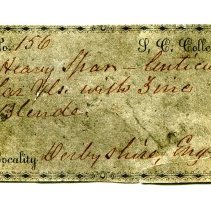 No. 156 S. C. Colle
Heavy Spar – lenticu
lar Xls. with Zinc
Blende.
Locality Derbyshire, Eng